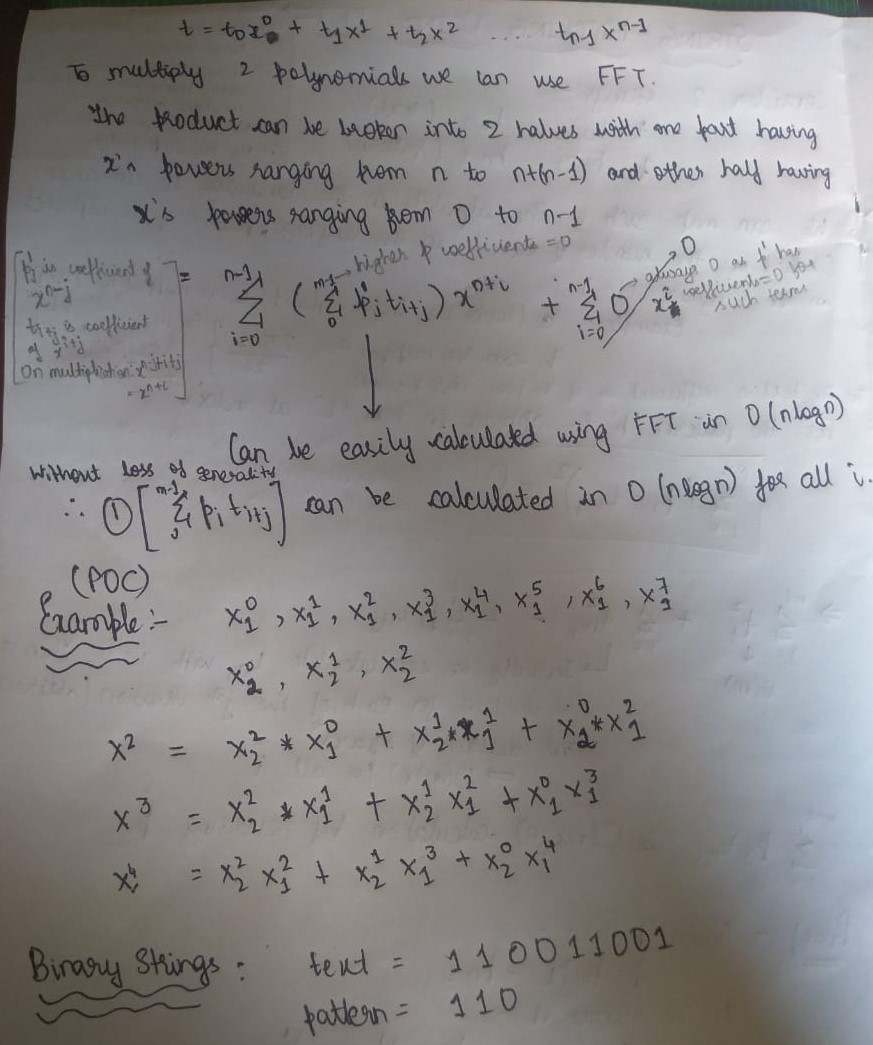 t = t₀x⁰ + t₁x¹ + t₂x² .... tₙ₋₁ xⁿ⁻¹
To multiply 2 polynomials we can use FFT.
The product can be broken into 2 halves with one part having
x's powers ranging from n to n+(n-1) and other half having
x's powers ranging from 0 to n-1
[p'ⱼ is coefficient of xⁿ⁻ʲ
tᵢ₊ⱼ is coefficient of xⁱ⁺ʲ
On multiplication: xⁿ⁻ʲ⁺ⁱ⁺ʲ = xⁿ⁺ⁱ]
= Σ_{i=0}^{n-1} ( Σ_{0}^{m-1} p'ⱼ tᵢ₊ⱼ ) xⁿ⁺ⁱ + Σ_{i=0}^{n-1} 0 xⁱ → 0
→ higher p coefficients = 0
→ always 0 as p' has coefficients = 0 for such terms
Can be easily calculated using FFT in O(nlogn)
Without loss of generality
∴ ① [ Σ_{0}^{m-1} pᵢ tᵢ₊ⱼ ] can be calculated in O(nlogn) for all i.
(POC)
Example:- x₁⁰, x₁¹, x₁², x₁³, x₁⁴, x₁⁵, x₁⁶, x₁⁷
x₂⁰, x₂¹, x₂²
x² = x₂² * x₁⁰ + x₂¹ * x₁¹ + x₂⁰ * x₁²
x³ = x₂² * x₁¹ + x₂¹ x₁² + x₁⁰ x₁³
x⁴ = x₂² x₁² + x₂¹ x₁³ + x₂⁰ x₁⁴
Binary Strings: text = 110011001
pattern = 110